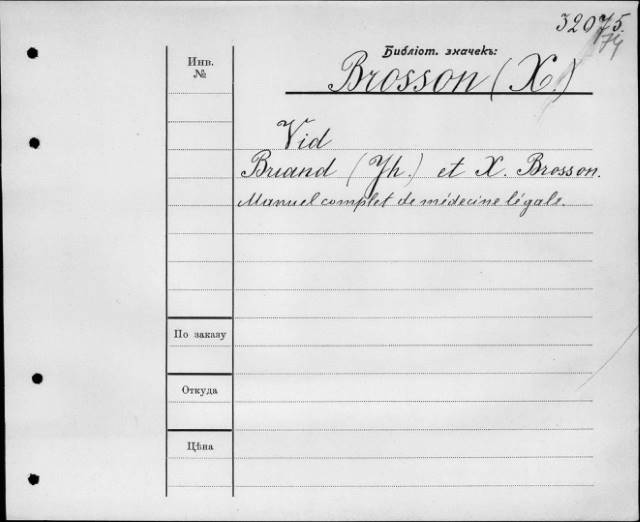 32075.
74
Библіот. значекъ:
Инв.
№
Brosson (X.)
Vid
Briand (Jh.) et X. Brosson.
Manuel complet de médecine légale.
По заказу
Откуда
Цѣна